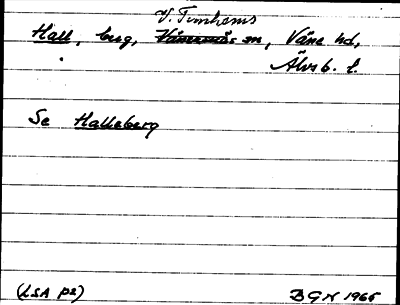 V. Tunhems
Hall, berg, Vänersnäs sn, Väne hd,
Älvsb. l.
Se Halleberg
(LSA p2) BGN 1965